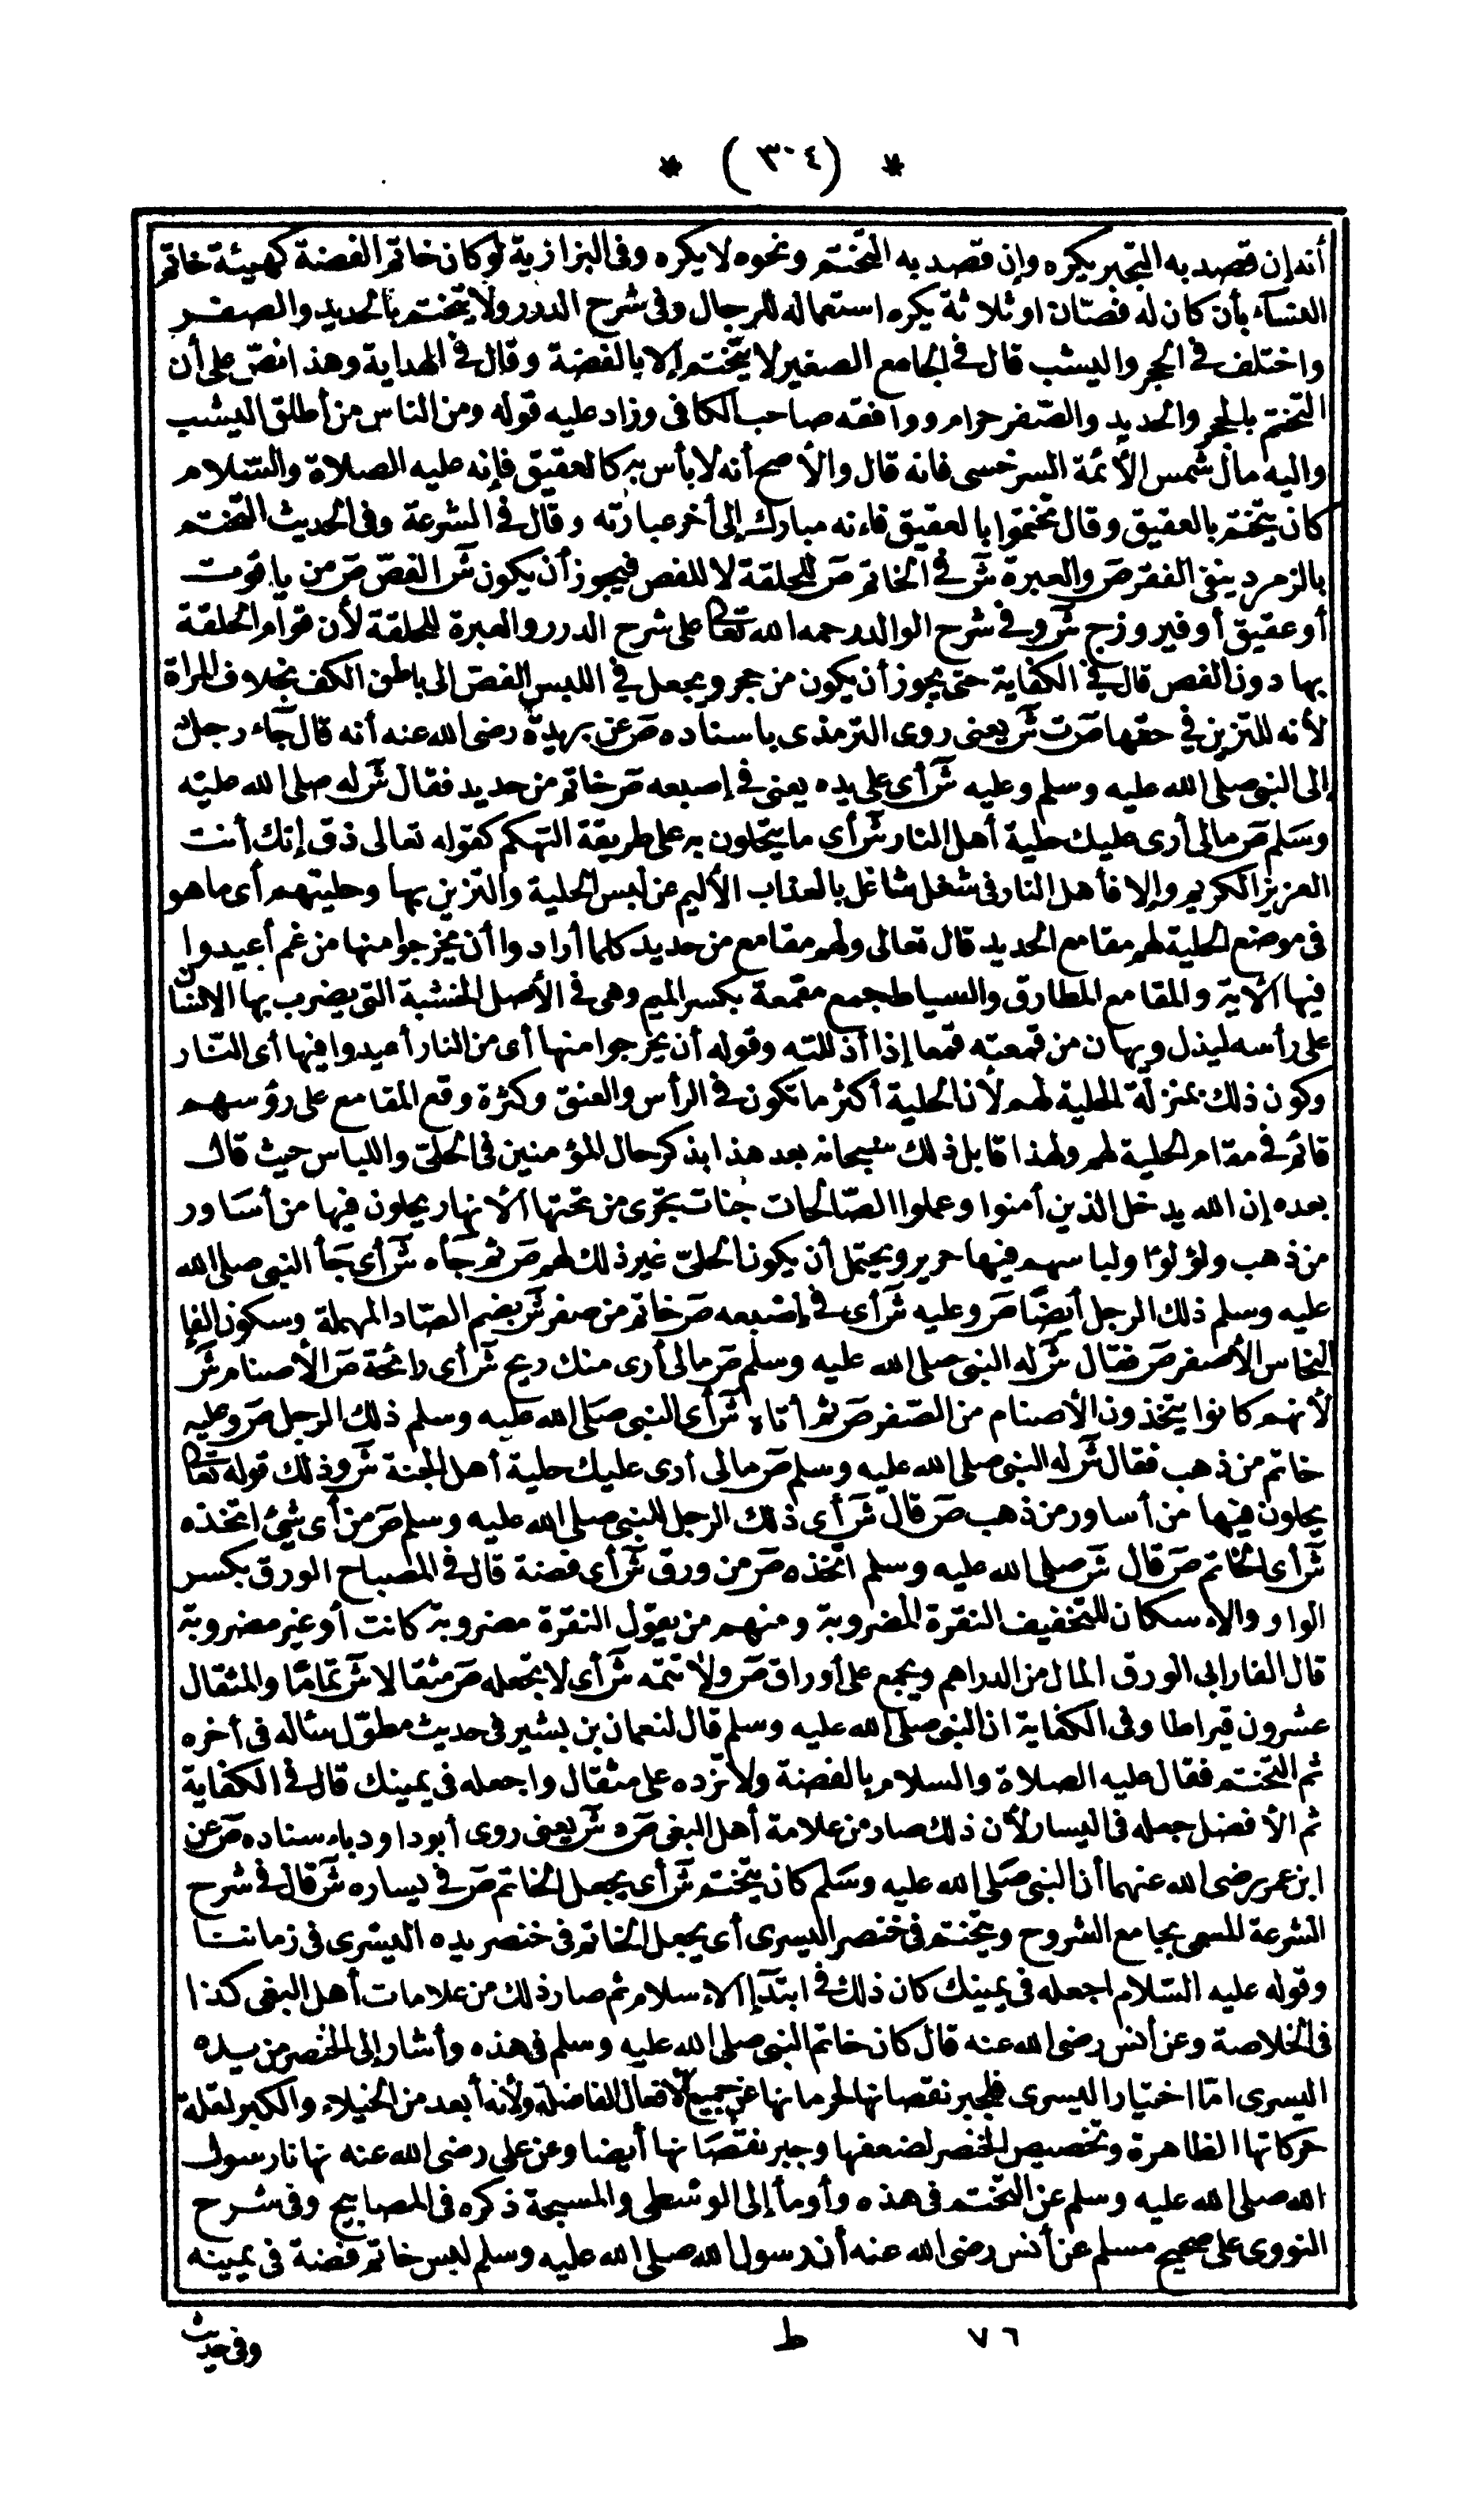 * (٣٠٤) *
أنه إن قصد به التجبر يكره وإن قصد به التختم ونحوه لا يكره وفى البزازية لو كان خاتم الفضة كهيئة خاتم
النسآء بأن كان له فصّان او ثلاثة يكره استعماله للرجال وفى شرح الدرر ولا يتختم بالحديد والصفر
واختلف فى الحجر واليشب قال فى الجامع الصغير لا يتختم إلا بالفضة وقال فى الهداية وهذا نصّ على أن
التختم بالحجر والحديد والصّفر حرام ووافقه صاحب الكافى وزاد عليه قوله ومن الناس من أطلق اليشب
واليه مال شمس الأئمة السرخسى فانه قال والأصح أنه لا بأس به كالعقيق فإنه عليه الصلاة والسّلام
كان يتختم بالعقيق وقال تختموا بالعقيق فاءنه مبارك إلى أخر عبارته وقال فى الشرعة وفى الحديث التختم
بالزمرد ينفى الفقر صَ والعبرة شَ فى الخاتم صَ للحلقة لا للفص فيجوز أن يكون شَ الفصّ صَ من ياقوت
أو عقيق أو فيروزج شَ وفى شرح الوالد رحمه الله تعا على شرح الدرر والعبرة للحلقة لأن قوام الحلقة
بها دون الفص قال فى الكفاية حتى يجوز أن يكون من حجر ويجعل فى اللبس الفصّ الى باطن الكف بخلاف المراة
لأنه للتزين فى حقها صَ ت شَ يعنى روى الترمذى باسناده صَ عن بريدة رضى الله عنه أنه قال جَاء رجل
إلى النبى صلى الله عليه وسلم وعليه شَ أى على يده يعنى فى إصبعه صَ خاتم من حديد فقال شَ له صلى الله عليه
وسَلم صَ مالى أرى عليك حلية أهل النار شَ أى ما يتحلون به على طريقة التهكم كقوله تعالى ذق إنك أنت
العزيز الكريم وإلا فأهل النار فى شغل شاغل بالعذاب الأليم عن لبس الحلية والتزين بها وحليتهم أى ما هو
فى موضع الحلية لهم مقامع الحديد قال تعالى ولهم مقامع من حديد كلما أرادوا أن يخرجوا منها من غم أعيدوا
فيها الآية والمقامع المطارق والسياط جمع مقمعة بكسر الميم وهى فى الأصل الخشبة التى يضرب بها الانسان
على رأسه ليذل ويهان من قمعته قمعا إذا أذللته وقوله أن يخرجوا منها أى من النار أعيدوا فيها أى النّار
وكون ذلك بمنزلة الحلية لهم لأن الحلية أكثر ما تكون فى الرأس والعنق وكثرة وقع المقامع على رؤسهم
قائم فى مقام الحلية لهم ولهذا قابل ذلك سبحانه بعد هذا بذكر حال المؤمنين فى الحلىّ واللباس حيث قال
بعده إن الله يدخل الذين أمنوا وعملوا الصّالحات جنات تجرى من تحتها الأنهار يحلون فيها من أسَاور
من ذهب ولؤلؤا ولباسهم فيها حرير ويحتمل أن يكون الحلىّ غير ذلك لهم صَ ثم جَاه شَ أى جَأ النبى صلى الله
عليه وسلم ذلك الرجل أيضًا صَ وعليه شَ أى فى إصبعه صَ خاتم من صفر شَ بضم الصّاد المهملة وسكون الفا
النحاس الأصفر صَ فقال شَ له النبى صلى الله عليه وسلم صَ مالى أرى منك ريح شَ أى رائحة صَ الأصنام شَ
لأنهم كانوا يتخذون الأصنام من الصّفر صَ ثم أتاه شَ أى النبى صَلى الله عليه وسلم ذلك الرجل صَ وعليه
خاتم من ذهب فقال شَ له النبى صلى الله عليه وسلم صَ مالى أرى عليك حلية أهل الجنة شَ وذلك قوله تعا
يحلون فيها من أساور من ذهب صَ قال شَ أى ذلك الرجل للنبى صلى الله عليه وسلم صَ من أى شئ اتخذه
شَ أى الخاتم صَ قال شَ صلى الله عليه وسلم اتخذه صَ من ورق شَ أى فضة قال فى المصباح الورق بكسر
الواو والاءسكان للتخفيف النقرة المضروبة ومنهم من يقول النقرة مضروبة كانت أو غير مضروبة
قال الفارابى الورق المال من الدراهم ويجمع على أوراق صَ ولا تتمه شَ أى لا تجعله صَ مثقالا شَ تمامًا والمثقال
عشرون قيراطا وفى الكفاية ان النبى صلى الله عليه وسلم قال لنعمان بن بشير فى حديث مطوّل سئاله فى أخره
ثم التختم فقال عليه الصلاة والسلام بالفضة ولا تزده على مثقال واجعله فى يمينك قال فى الكفاية
ثم الأفضل جعله فى اليسار لأن ذلك صار من علامة أهل البغى صَ د شَ يعنى روى أبو داود باءسناده صَ عن
ابن عمر رضى الله عنهما أن النبى صَلى الله عليه وسَلم كان يتختم شَ أى يجعل الخاتم صَ فى يساره شَ قال فى شرح
الشرعة المسمى بجامع الشروح ويتختم فى خنصر اليسرى أى يجعل الخاتم فى خنصر يده اليسرى فى زماننا
وقوله عليه السّلام اجعله فى يمينك كان ذلك فى ابتدآء الاءسلام ثم صار ذلك من علامات أهل البغى كذا
فى الخلاصة وعن أنس رضى الله عنه قال كان خاتم النبى صلى الله عليه وسلم فى هذه وأشار إلى الخنصر من يده
اليسرى امّا اختيار اليسرى فلجبر نقصانها لحرمانها عن جميع الافعال الفاضلة ولأنه أبعد من الخيلاء والكبر لقلة
حركاتها الظاهرة وتخصيص الخنصر لضعفها وجبر نقصَانها أيضا وعن على رضى الله عنه نهانا رسول
الله صلى الله عليه وسلم عن التختم فى هذه وأومأ إلى الوسْطى والمسبحة ذكره فى المصابيح وفى شرح
النووى على صحيح مسلم عن أنس رضى الله عنه أن رسول الله صلى الله عليه وسلم لبس خاتم فضة فى يمينه
٧٦ ط وفى حديث